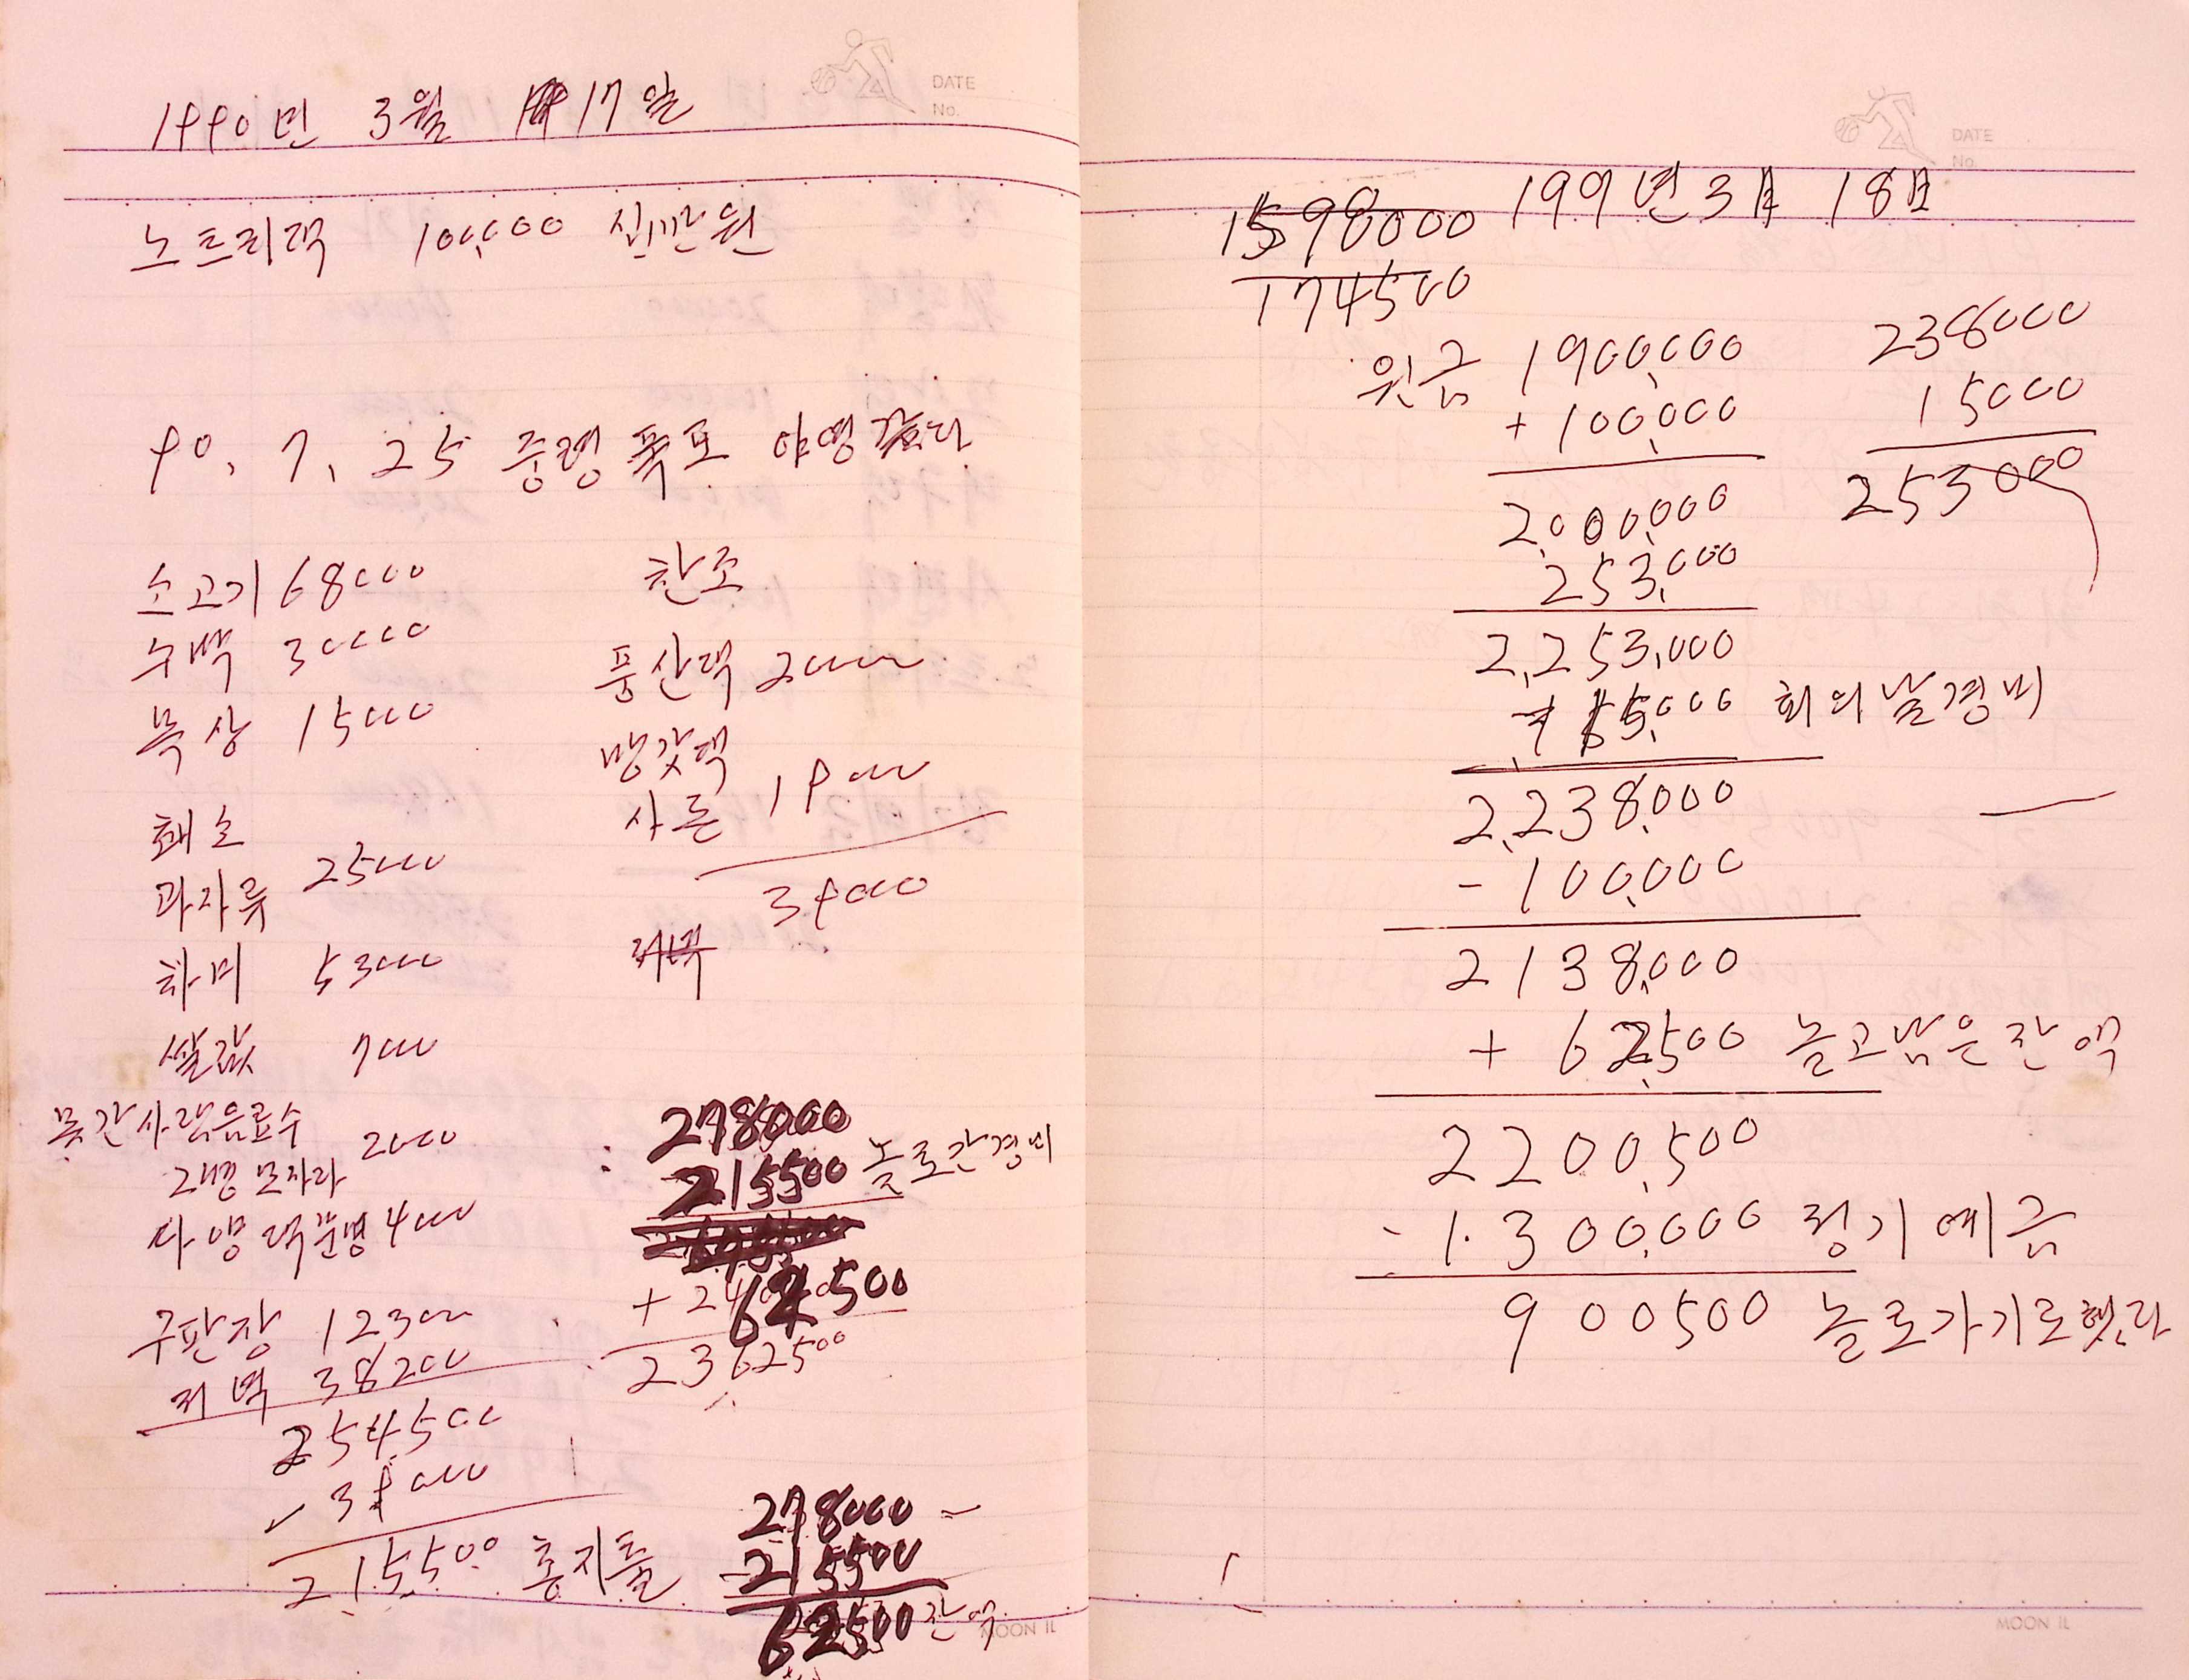 DATE
No.
1990년 3월 17일
노트리댁 100,000 십만원
90, 7, 25 중령 폭포 야영갔다
소고기 68000
수박 30000
묵상 15000
화소
과자류 25000
차비 53000
쌀값 7000
못간사람음료수
2명 모자라 2000
사양댁 4000
구판장 12300
저녁 38200
254500
- 39000
215500 총지출
찬조
풍산댁 20000
방갓댁
사돈 19000
39000
저녁
278000
215500 놀로간경비
+ 2
62500
2362500
278000
-215500
62500 잔액
MOON IL
DATE
No.
199년 3월 18일
1598000
174500
원금 1900,000
+ 100,000
2,000,000
253,000
2,253,000
15,000 회의날경비
2,238,000
- 100,000
2138,000
+ 62,500 놀고남은잔액
2200,500
- 1.300,000 정기예금
900500 놀로가기로했다
238000
15000
253000
MOON IL